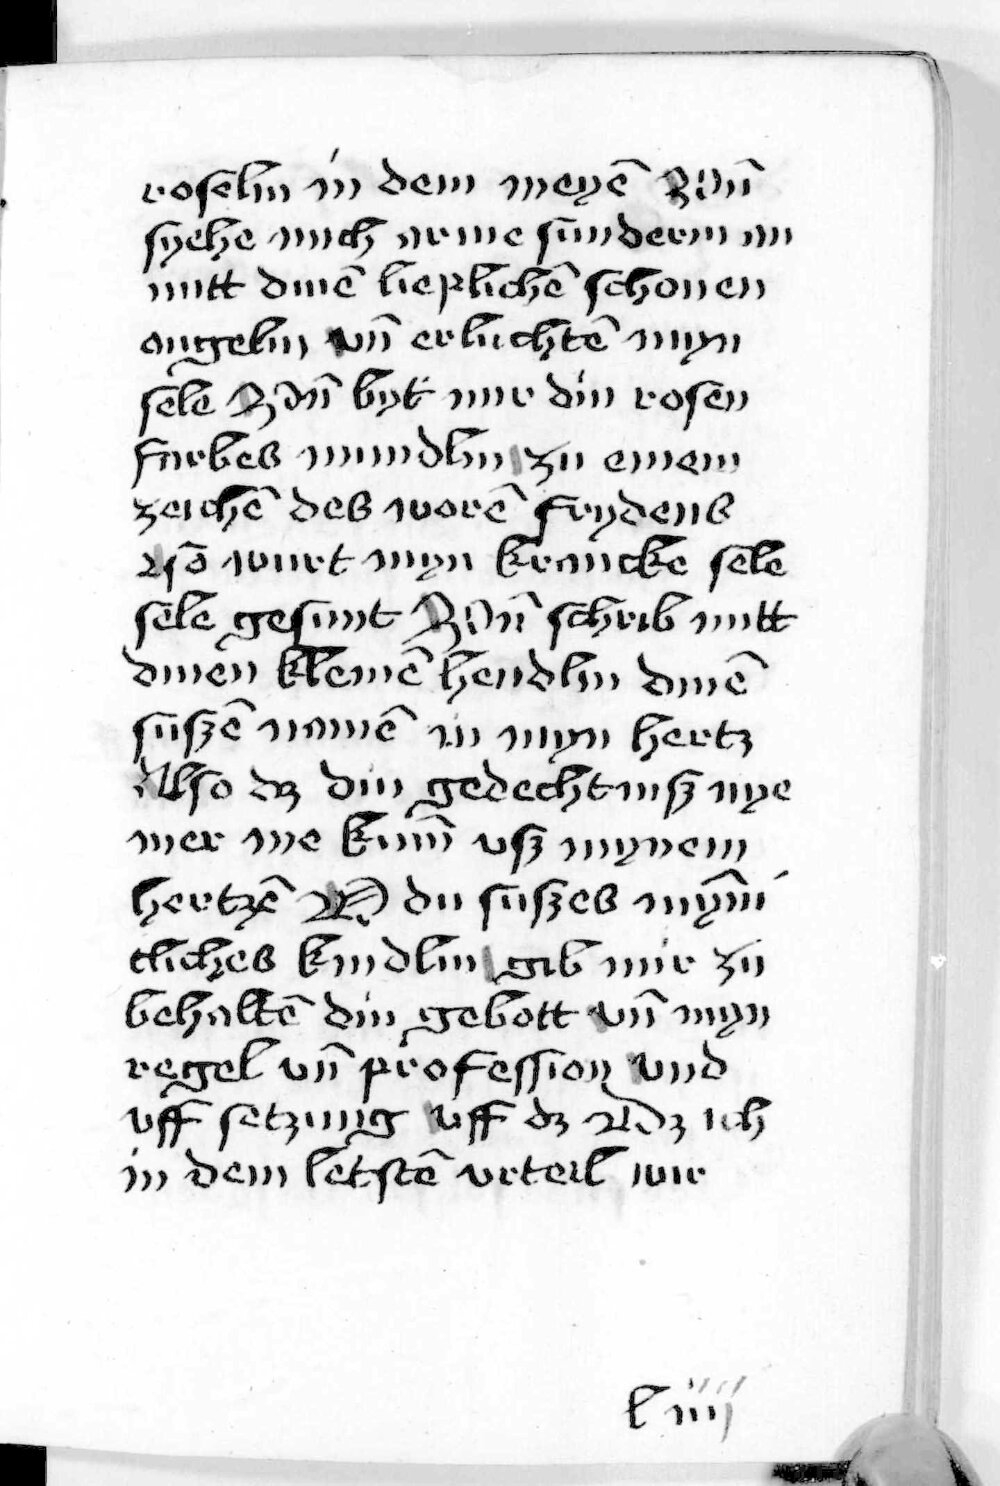 roselin in dem meyē Vñ
syehe mich arme sunderin an
mitt dinē lieplichē schonen
ougelin vñ erluchtē myn
sele Vñ byt mir din rosen
farbes mundlin zu einem
zeichē des worē frydens
Also wurt myn krancke sele
sele gesunt Vñ schrib mitt
dinen kleinē hendlin dinē
suszē namē in myn hertz
Also dz din gedechtnisz nye
mer me kum̄ vsz mynem
hertzē O du suszes mym̄
cliches kindlin gib mir zu
behaltē din gebott vñ myn
regel vñ profession vnd
vff setzung vff dz dz ich
in dem letstē vrteil wir
l iiij